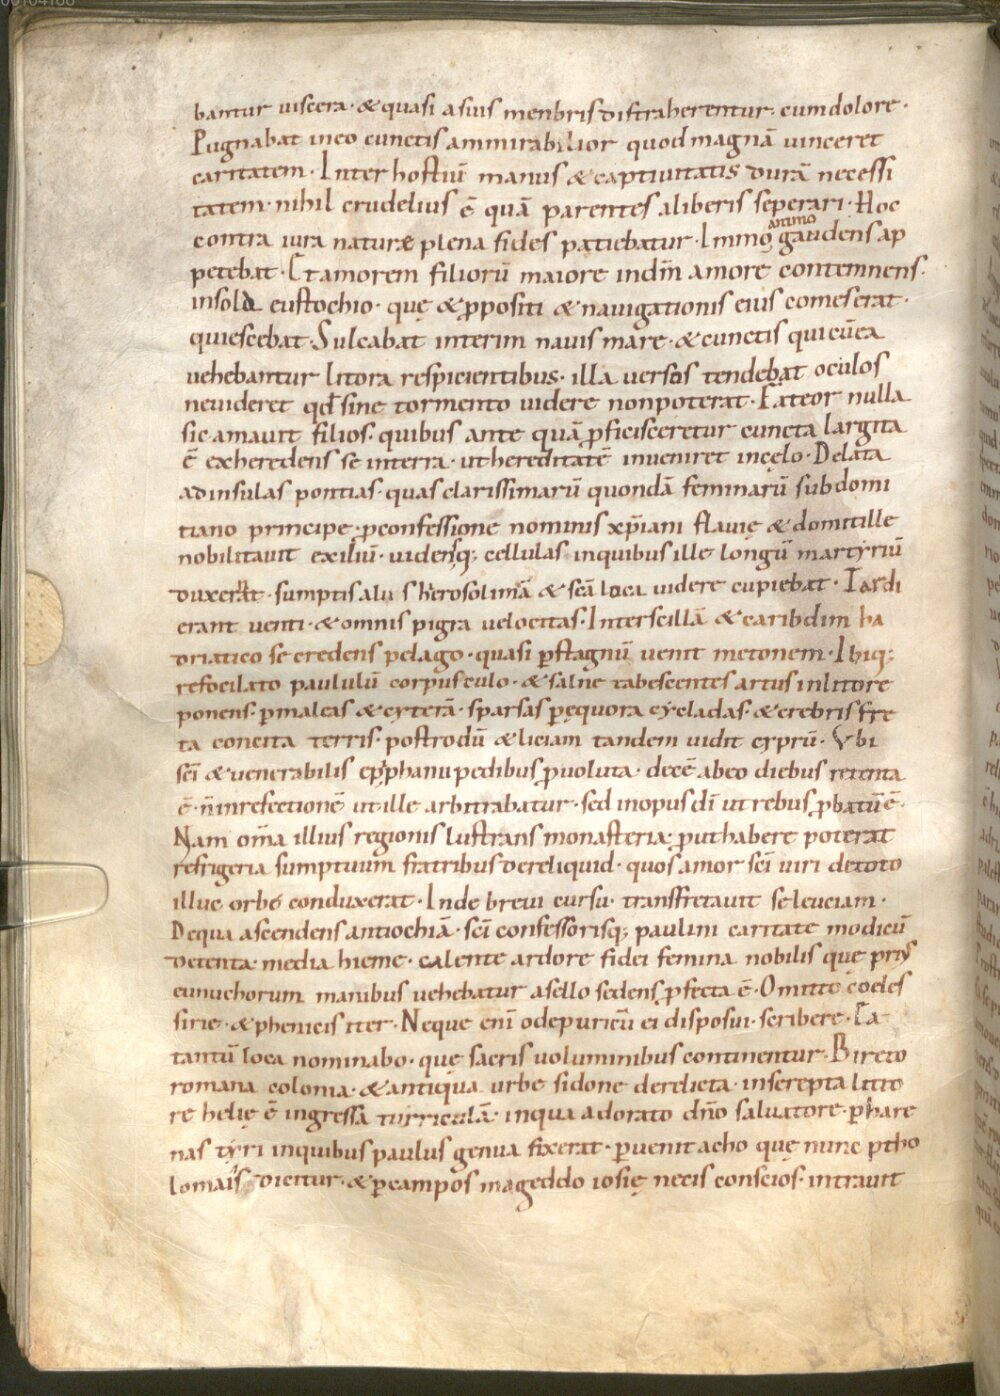 00104168
bantur uiscera · & quasi asuis menbris distraherentur · cum dolore ·
Pugnabat ineo cunctis ammirabilior quod magnā uinceret
caritatem · Inter hostiū manus & captiuitatis durā necessi
tatem · nihil crudelius ē quā parentes aliberis seperari · Hoc
contra iura naturæ plena fides patiebatur · Immo animo gaudens ap
petebat · Et amorem filiorū maiore indm̄ amore contemnens ·
insola eustochio · quę & ꝓpositi & nauigationis eius comes erat ·
quiescebat · Sulcabat interim nauis mare · & cunctis qui cū ea
uehebantur litora respicientibus · illa uersos tendebat oculos
neuideret qđ sine tormento uidere nonpoterat · Fateor nulla
sic amauit filios · quibus ante quā ꝓficisceretur cuncta largita
ē exheredens se interra · ut hereditatē inueniret incęlo · Delata
adinsulas pontias · quas clarissimarū quondā feminarū sub domi
tiano principe · ꝓconfessione nominis xp̄iani flauię & domitille
nobilitauit exiliū · uidensq; cellulas inquibus ille longū martyriū
duxerat · sumptis aliis hierosolimā & sc̄a loca uidere cupiebat · Tardi
erant uenti · & omnis pigra uelocitas · Inter scillā & caribdim ha
driatico se credens pelago · quasi ꝑstagnū uenit metonem · Ibiq;
refocilato paululū corpusculo · & salne tabescentes artus inlitore
ponens · ꝑ maleas & cyterā · sparsas ꝑ equora cycladas · & crebris fre
ta concita terris · post rodū & liciam tandem uidit cyprū · Vbi
sc̄i & uenerabilis epyphanii pedibus ꝓuoluta · decē abeo diebus retenta
ē · n̄ inrefectionē ut ille arbitrabatur · sed inopus dī ut rebus ꝓbatū ē ·
Nam om̄a illius regionis lustrans monasteria · ꝓut habere poterat
refrigeria sumptuum fratribus dereliquid · quos amor sc̄i uiri detoto
illuc orbe conduxerat · Inde breui cursu · transfretauit seleuciam ·
Dequa ascendens antiochiā · sc̄i confessorisq; paulini caritate modicū
detenta · media hieme · calente ardore fidei femina nobilis que prius
eunuchorum manibus uehebatur asello sedens ꝓfecta ē · Omitto coeles
sirie · & phenicis iter · Neque enī odepuricū ei disposui · scribere · Ea
tantū loca nominabo · quę sacris uoluminibus continentur · Bireto
romana colonia · & antiqua urbe sidone derelicta · inserepta litto
re helię ē ingressa turriculā · inqua adorato dn̄o salvatore · ꝑ hare
nas tyri inquibus paulus genua fixerat · ꝑuenit acho quę nunc ptho
lomais dicitur · & ꝑ campos mageddo iosię necis conscios · intrauit